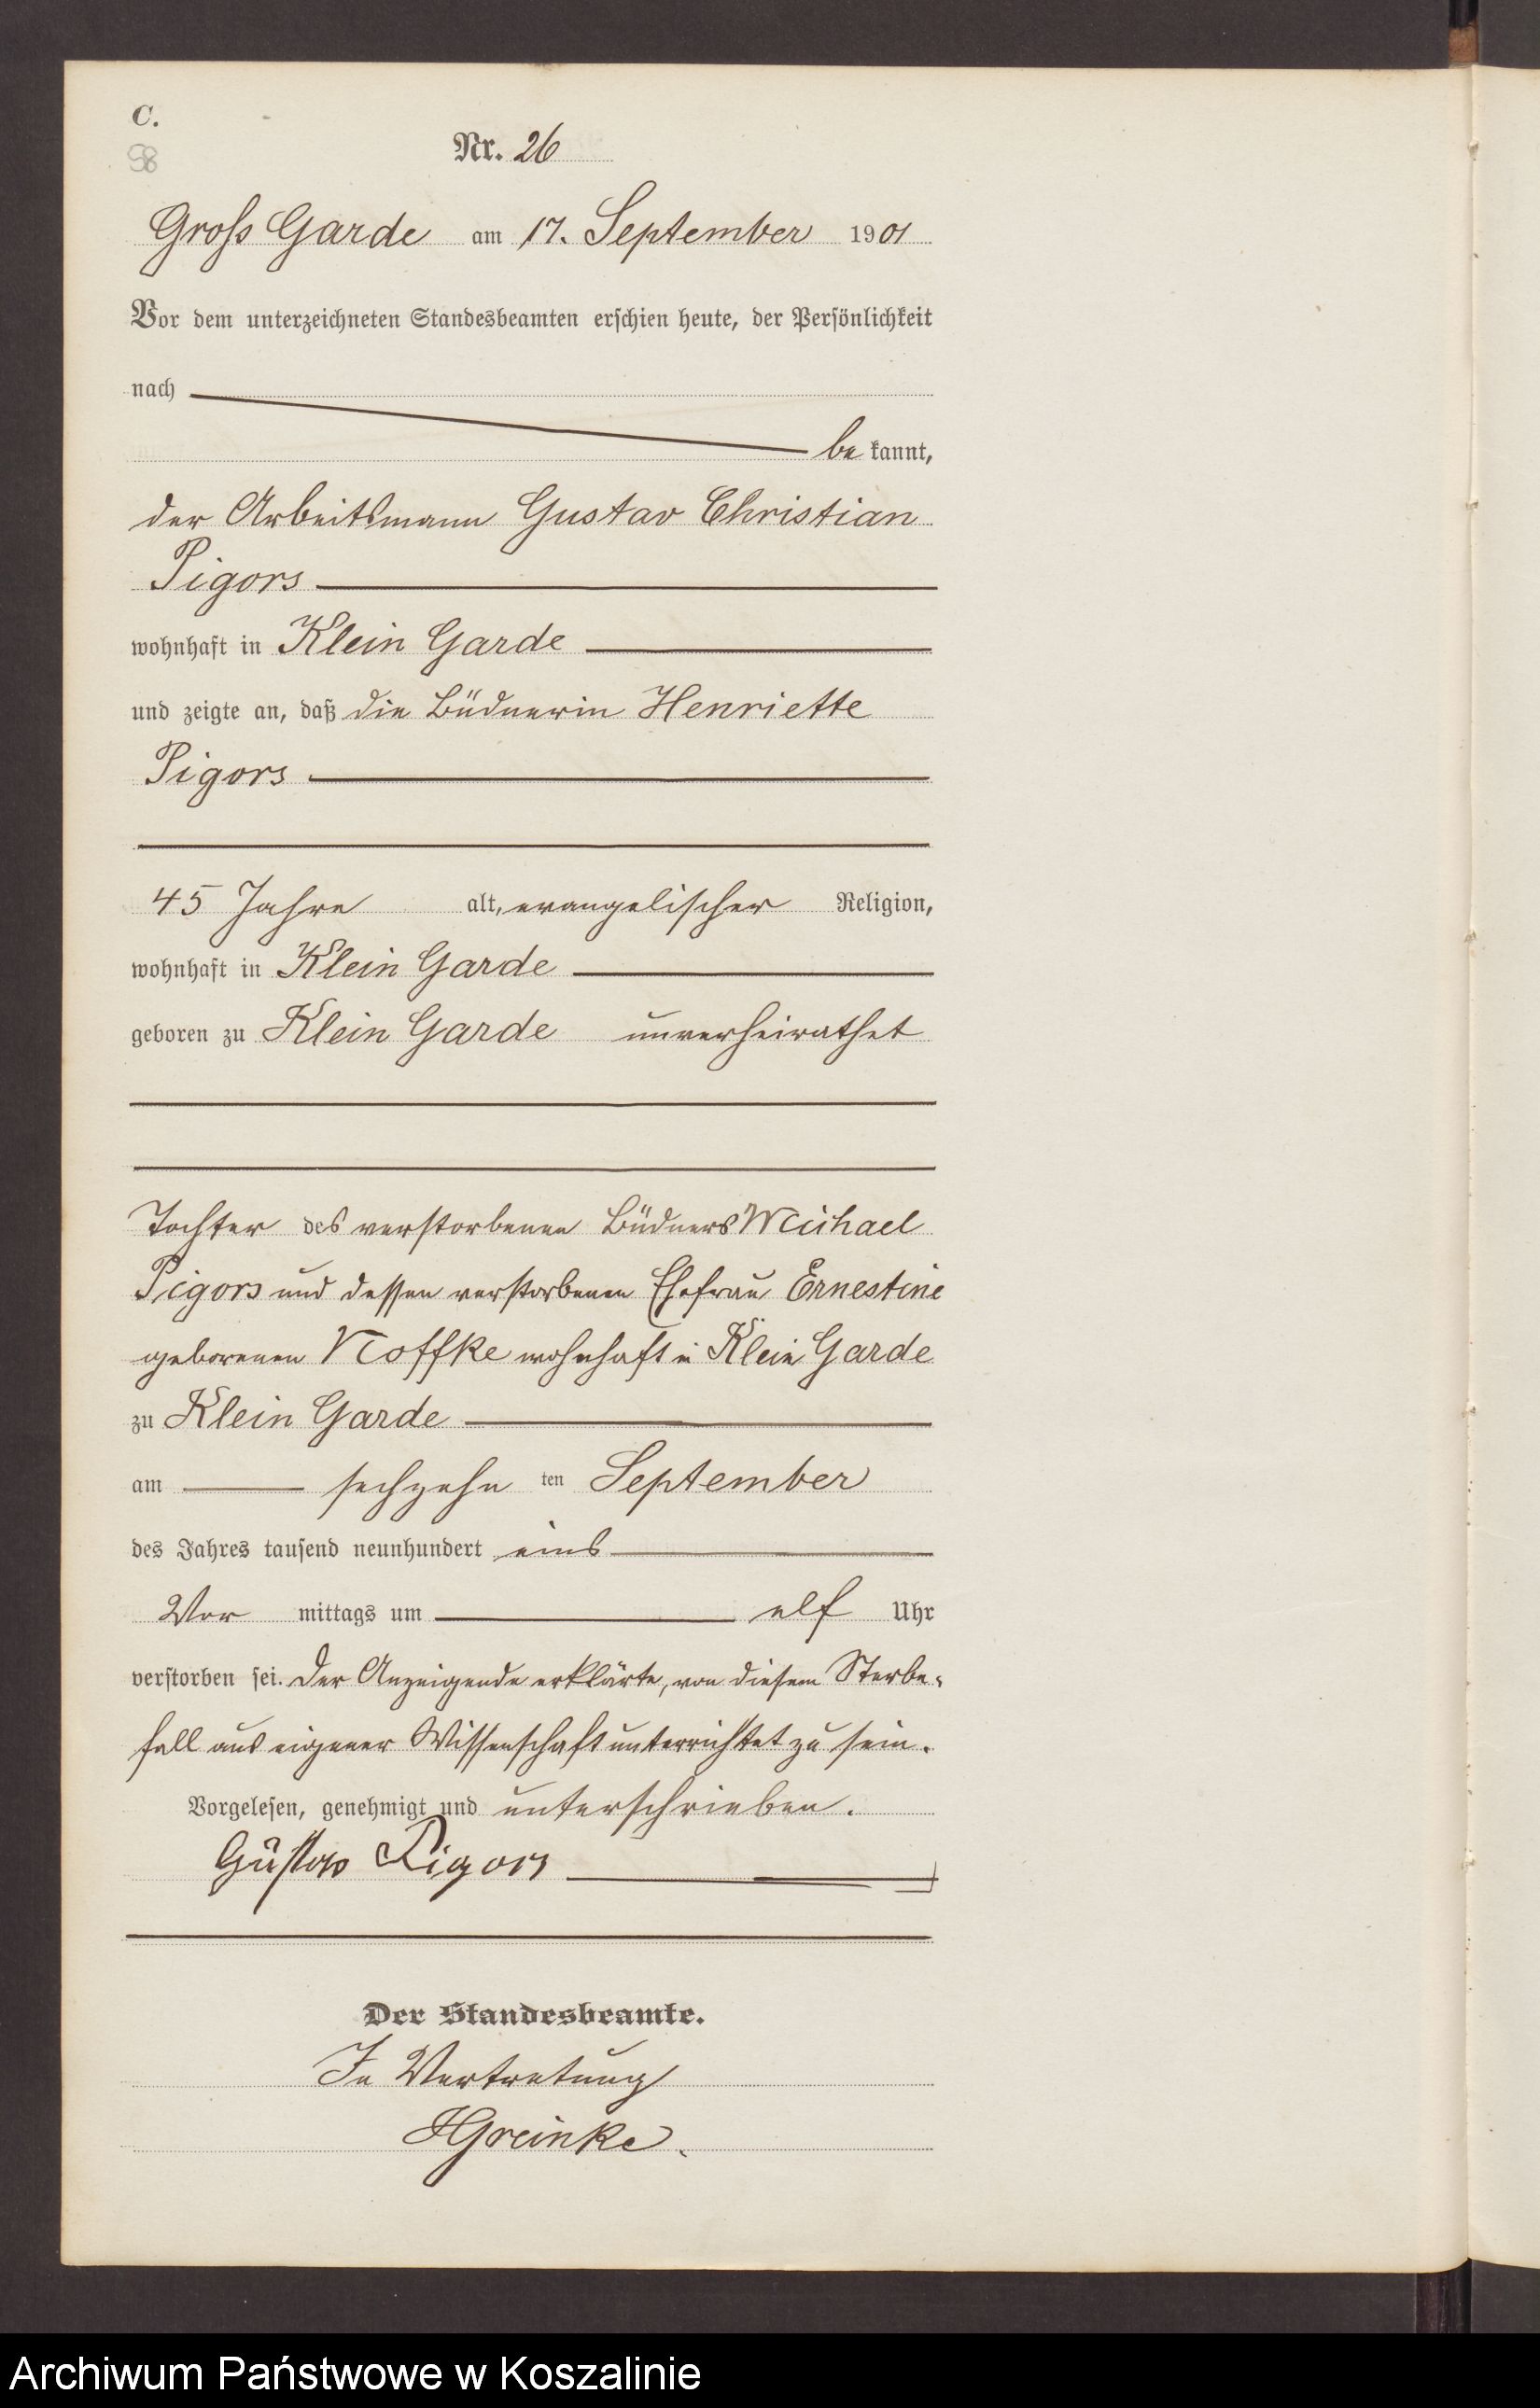 C.
98
Nr. 26
Gross Garde am 17. September 1901
Vor dem unterzeichneten Standesbeamten erschien heute, der Persönlichkeit
nach
be kannt,
der Arbeitsmann Gustav Christian
Pigors
wohnhaft in Klein Garde
und zeigte an, daß die Büdnerin Henriette
Pigors
45 Jahre alt, evangelischer Religion,
wohnhaft in Klein Garde
geboren zu Klein Garde unverheirathet
Tochter des verstorbenen Büdners Michael
Pigors und dessen verstorbenen Ehefrau Ernestine
geborenen Noffke wohnhaft in Klein Garde
zu Klein Garde
am sechzehn ten September
des Jahres tausend neunhundert eins
Vor mittags um elf Uhr
verstorben sei. Der Anzeigende erklärte, von diesem Sterbe-
fall aus eigener Wissenschaft unterrichtet zu sein.
Vorgelesen, genehmigt und unterschrieben.
Gustav Pigors
Der Standesbeamte.
In Vertretung
HGreinke.
Archiwum Państwowe w Koszalinie